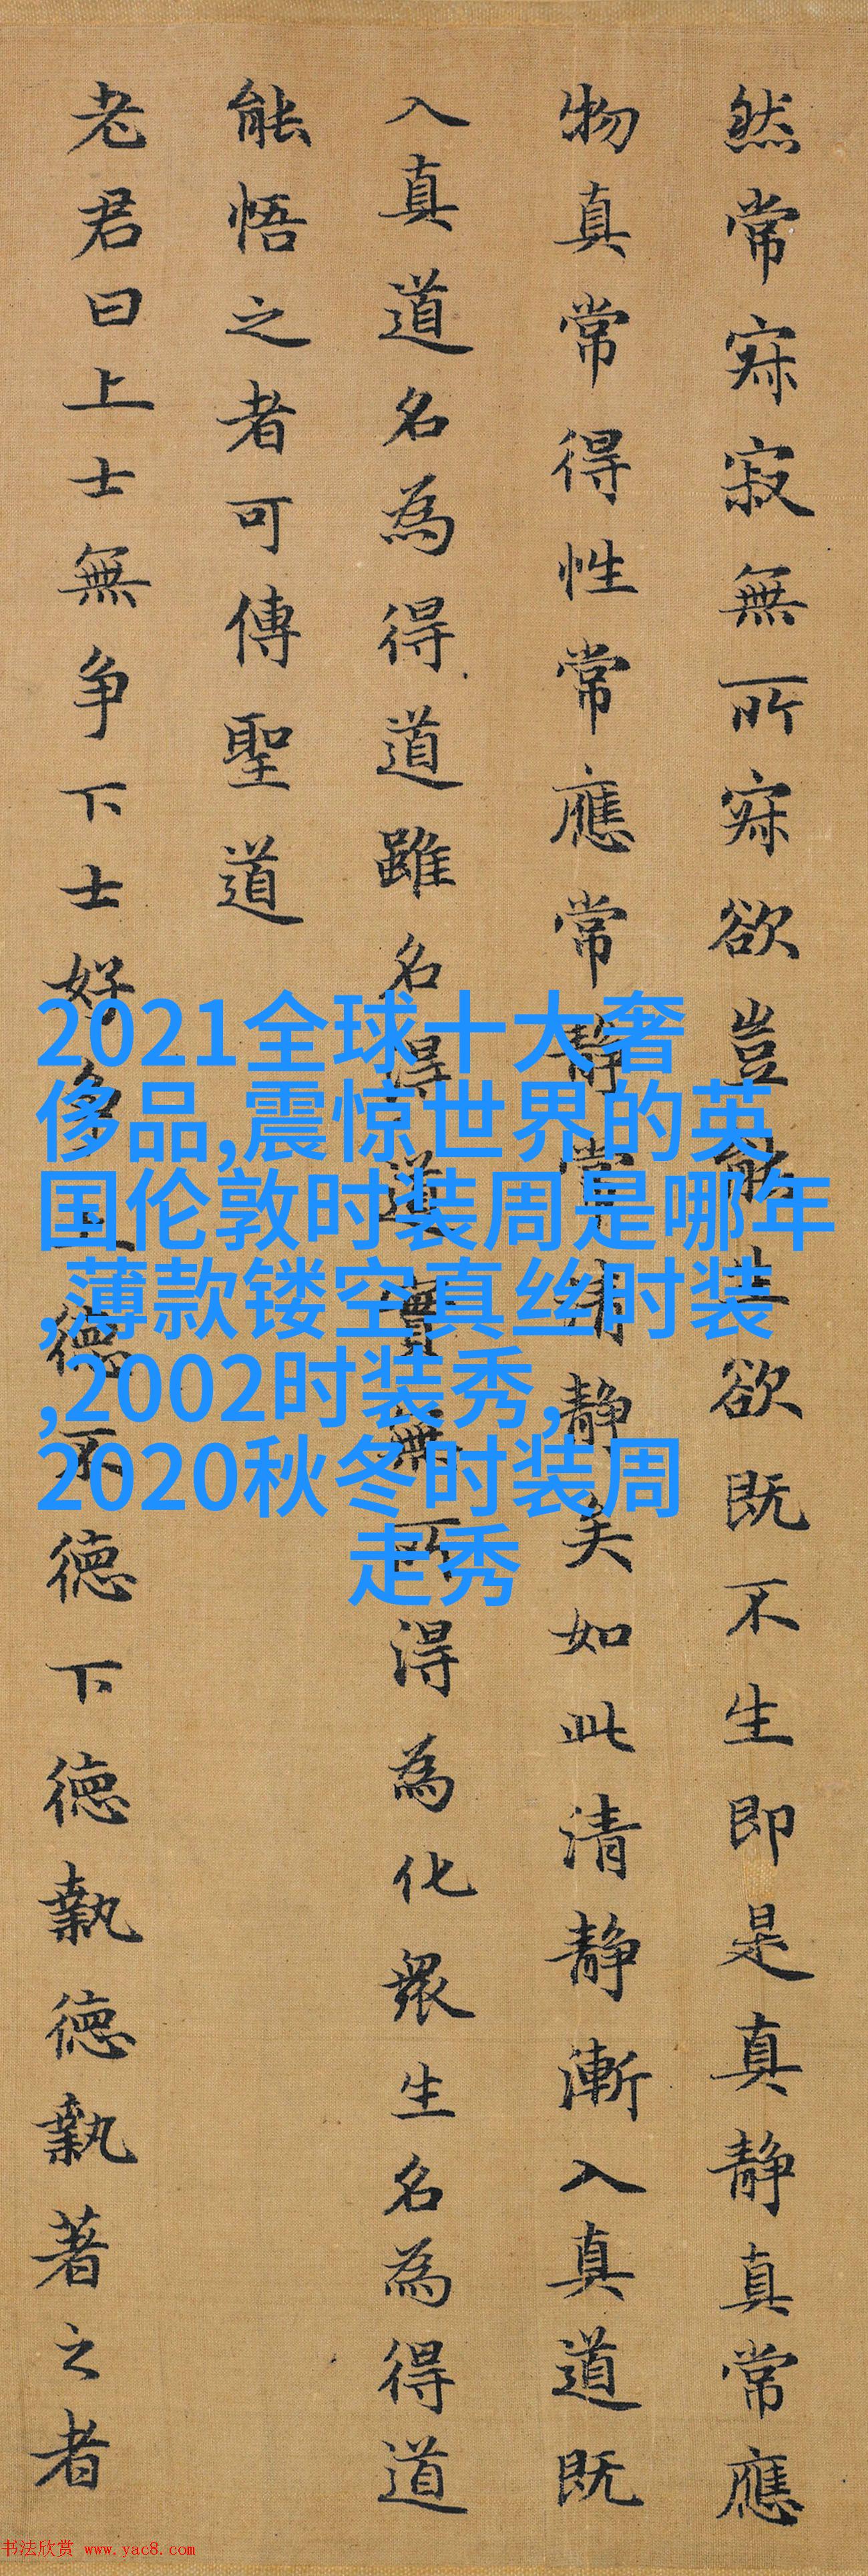 然常寂寂無所寂欲豈能生欲既不生即是真静真常應
物真常得性常應常静常清静矣如此清静漸入真道既
入真道名為得道雖名得道實無所得為化眾生名為得道
能悟之者可傳聖道
老君曰上士無争下士好争上德不德下德執德執著之者
2021全球十大奢
侈品,震惊世界的英
国伦敦时装周是哪年
,薄款镂空真丝时装
,2002时装秀,
2020秋冬时装周
走秀
书法欣赏 www.yac8.com